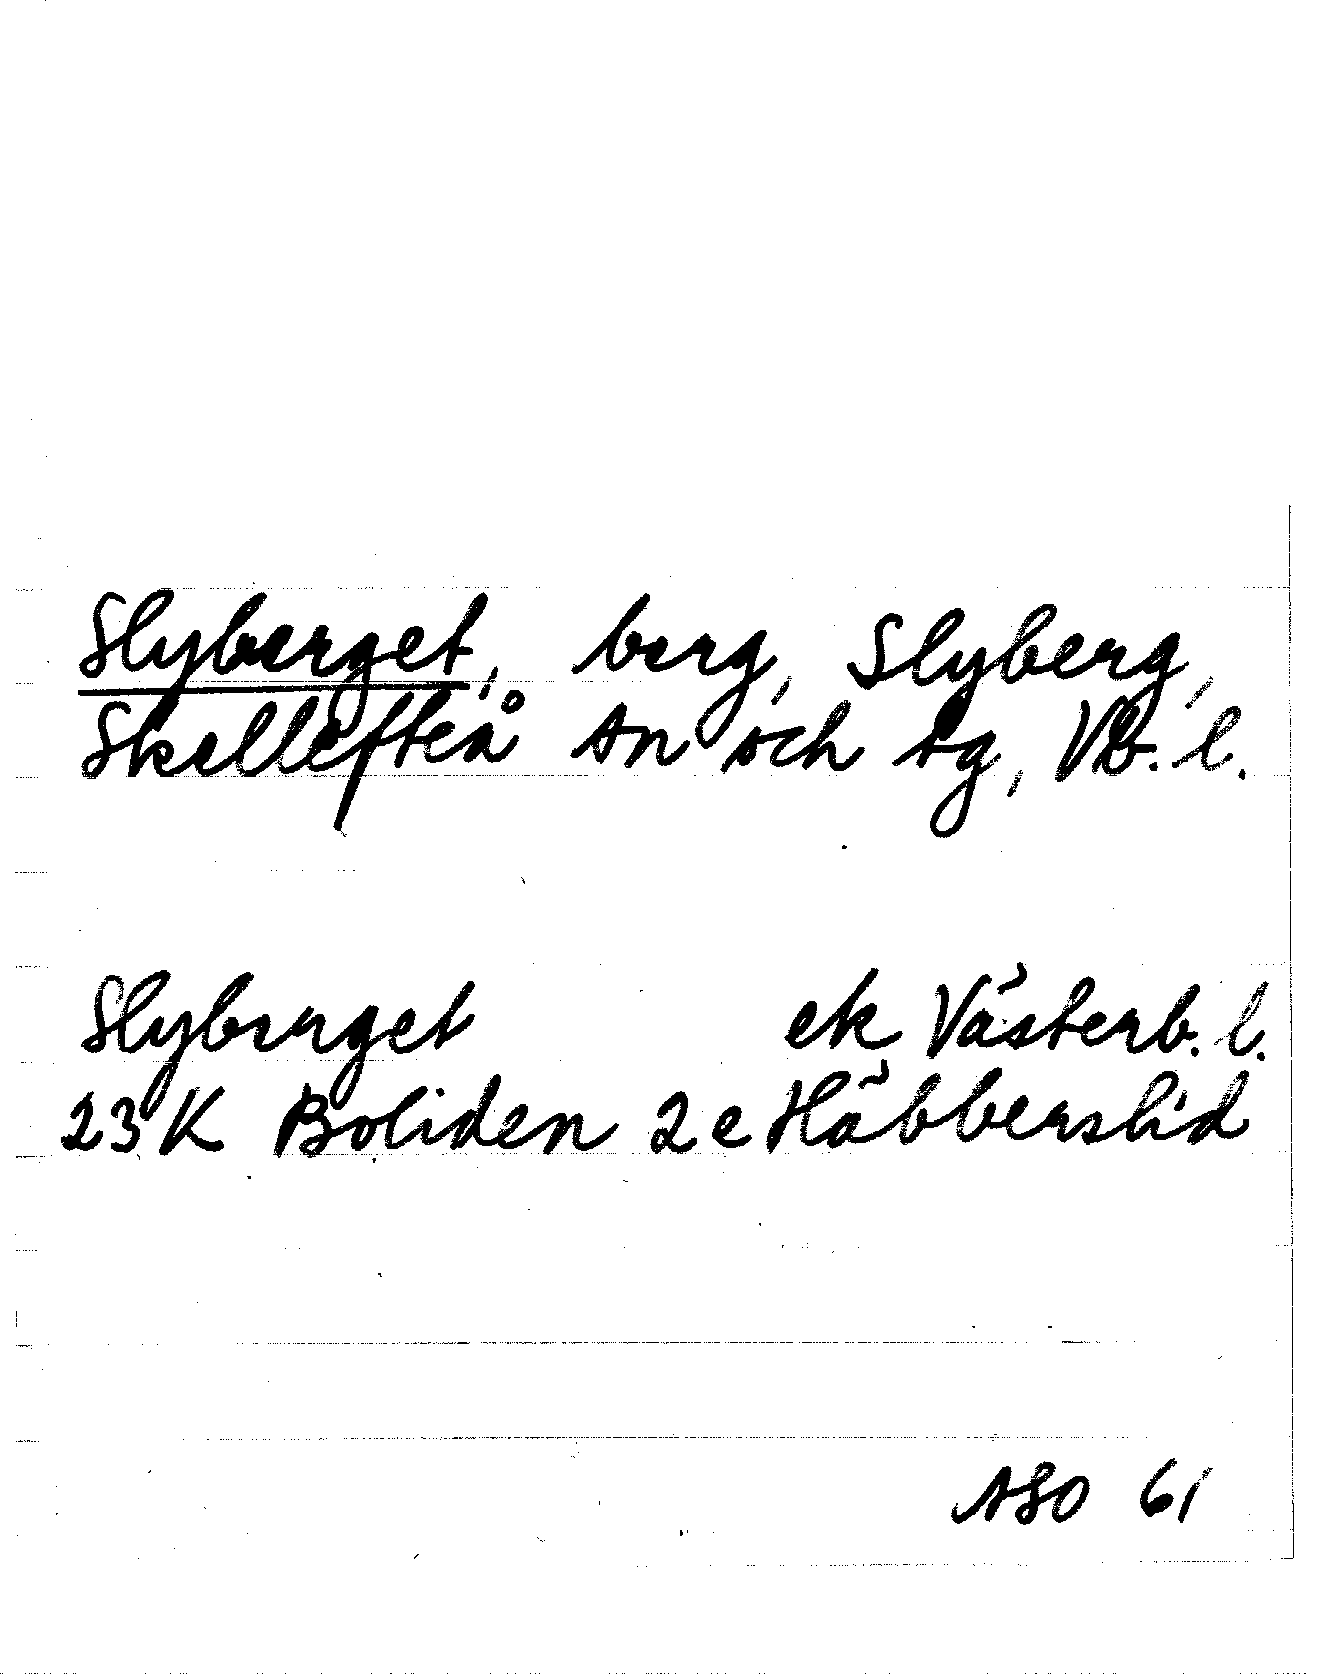 Slyberget, berg, Slyberg,
Skellefteå sn och tg, Vb. l.
Slyberget ek Västerb. l.
23 K Boliden 2 e Häbberslid
ASO 61